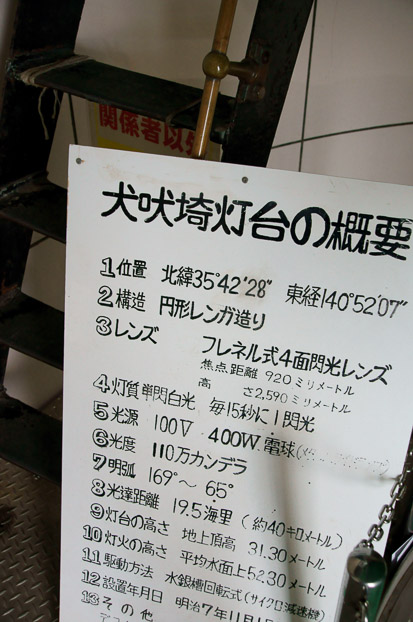 関係者以外
犬吠埼灯台の概要
1 位置 北緯35°42′28″ 東経140°52′07″
2 構造 円形レンガ造り
3 レンズ フレネル式4面閃光レンズ
焦点距離 920ミリメートル
高さ2,590ミリメートル
4 灯質 単閃白光 毎15秒に1閃光
5 光源 100V 400W 電球
6 光度 110万カンデラ
7 明弧 169°〜65°
8 光達距離 19.5海里(約40キロメートル)
9 灯台の高さ 地上頂高 31.30メートル
10 灯火の高さ 平均水面上52.30メートル
11 駆動方法 水銀槽回転式(サイクロ減速機)
12 設置年月日 明治7年11月
13 その他